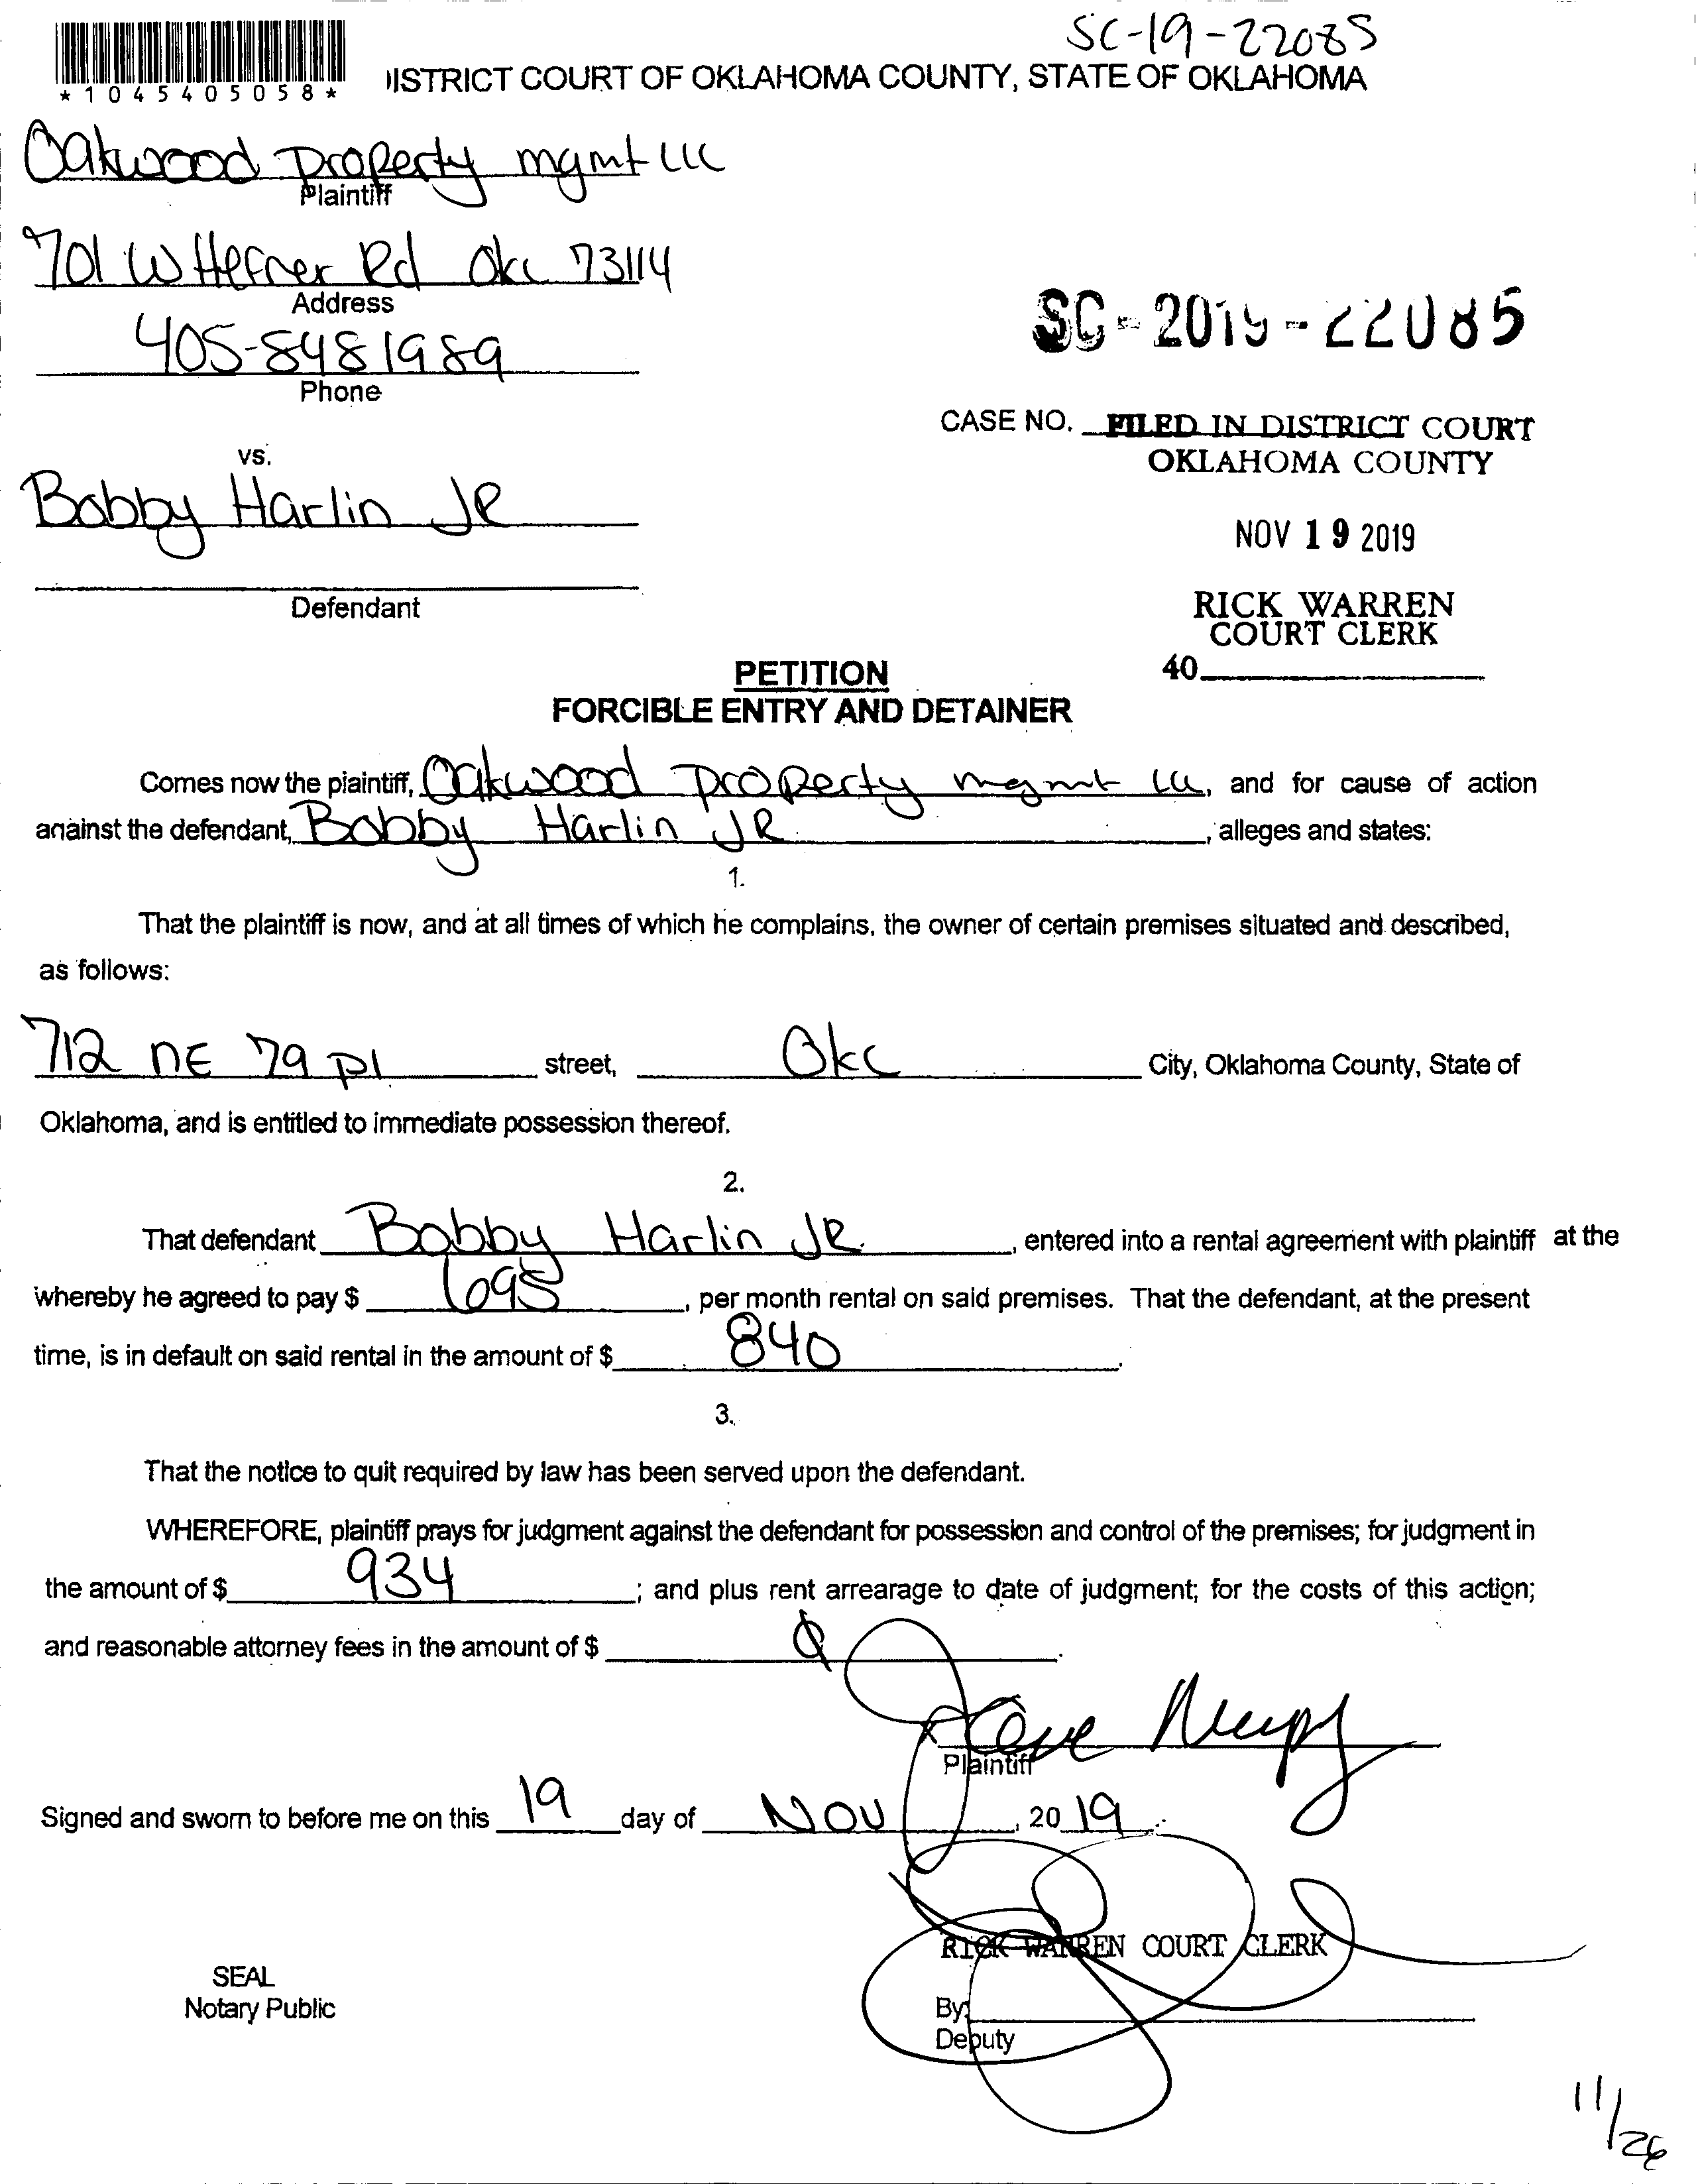 SC-19-22085
*1045405058*
ISTRICT COURT OF OKLAHOMA COUNTY, STATE OF OKLAHOMA
Oakwood Property mgmt LLC
Plaintiff
701 W Hefner Rd Okc 73114
Address
SC-2019-22085
405-848 1989
Phone
CASE NO. FILED IN DISTRICT COURT
OKLAHOMA COUNTY
vs.
Bobby Harlin JR
NOV 19 2019
Defendant
RICK WARREN
COURT CLERK
40
PETITION
FORCIBLE ENTRY AND DETAINER
Comes now the plaintiff, Oakwood Property mgmt LLC, and for cause of action
against the defendant, Bobby Harlin JR, alleges and states:
1.
That the plaintiff is now, and at all times of which he complains, the owner of certain premises situated and described,
as follows:
712 NE 79 Pl street, Okc City, Oklahoma County, State of
Oklahoma, and is entitled to immediate possession thereof.
2.
That defendant Bobby Harlin JR., entered into a rental agreement with plaintiff at the
whereby he agreed to pay $ 695, per month rental on said premises. That the defendant, at the present
time, is in default on said rental in the amount of $ 840.
3.
That the notice to quit required by law has been served upon the defendant.
WHEREFORE, plaintiff prays for judgment against the defendant for possession and control of the premises; for judgment in
the amount of $ 934; and plus rent arrearage to date of judgment; for the costs of this action;
and reasonable attorney fees in the amount of $ .
x
Plaintiff
Signed and sworn to before me on this 19 day of NOV, 20 19.
RICK WARREN COURT CLERK
SEAL
Notary Public
By:
Deputy
11/26